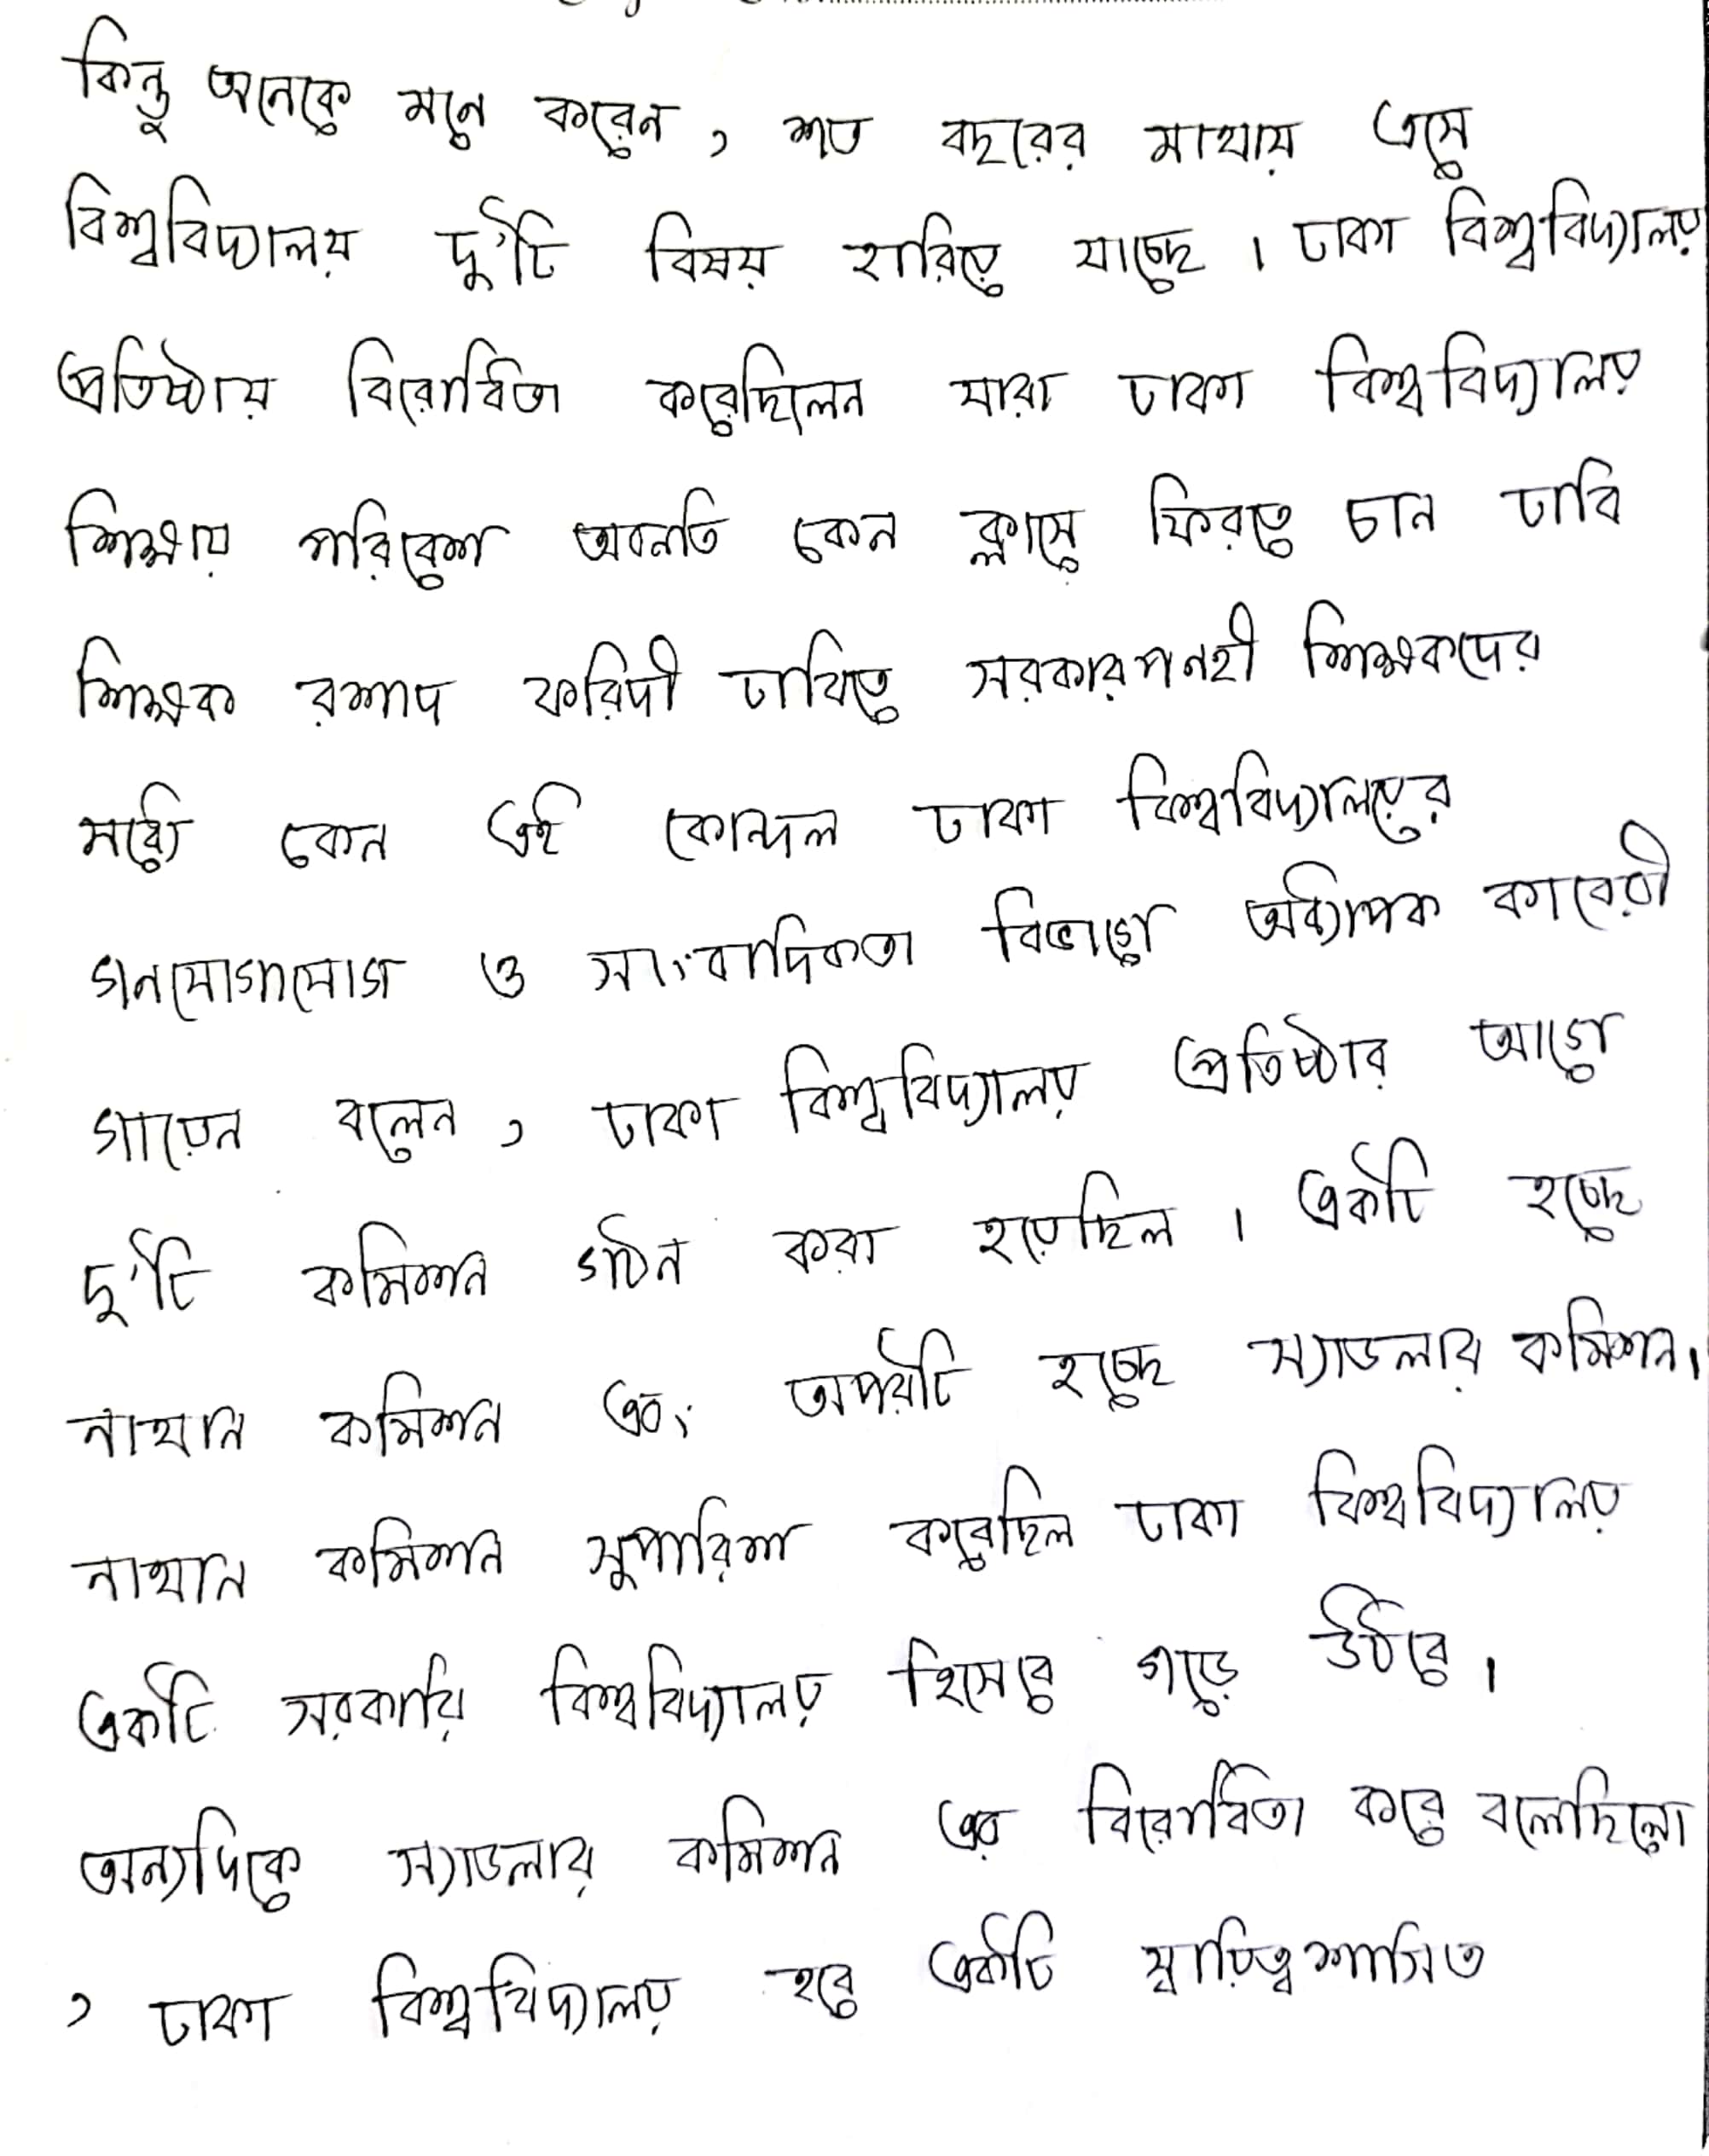 কিন্তু অনেকে মনে করেন, শত বছরের মাথায় এসে
বিশ্ববিদ্যালয় দু'টি বিষয় হারিয়ে যাচ্ছে। ঢাকা বিশ্ববিদ্যালয়
প্রতিষ্ঠায় বিরোধিতা করেছিলেন যারা ঢাকা বিশ্ববিদ্যালয়
শিক্ষায় পরিবেশ অবনতি কেন ক্লাসে ফিরতে চান ঢাবি
শিক্ষক রুশাদ ফরিদী ঢাবিতে সরকারপনহী শিক্ষকদের
মধ্যে কেন এই কোন্দল ঢাকা বিশ্ববিদ্যালয়ের
গনযোগাযোগ ও সাংবাদিকতা বিভাগে অধ্যাপক কাবেরী
গায়েন বলেন, ঢাকা বিশ্ববিদ্যালয় প্রতিষ্ঠার আগে
দু'টি কমিশন গঠন করা হয়েছিল। একটি হচ্ছে
নাথান কমিশন এবং অপরটি হচ্ছে স্যাডলার কমিশন।
নাথান কমিশন সুপারিশ করেছিল ঢাকা বিশ্ববিদ্যালয়
একটি সরকারি বিশ্ববিদ্যালয় হিসেবে গড়ে উঠবে।
অন্যদিকে স্যাডলার কমিশন এর বিরোধিতা করে বলেছিলো
, ঢাকা বিশ্ববিদ্যালয় হবে একটি স্বায়িত্বশাসিত